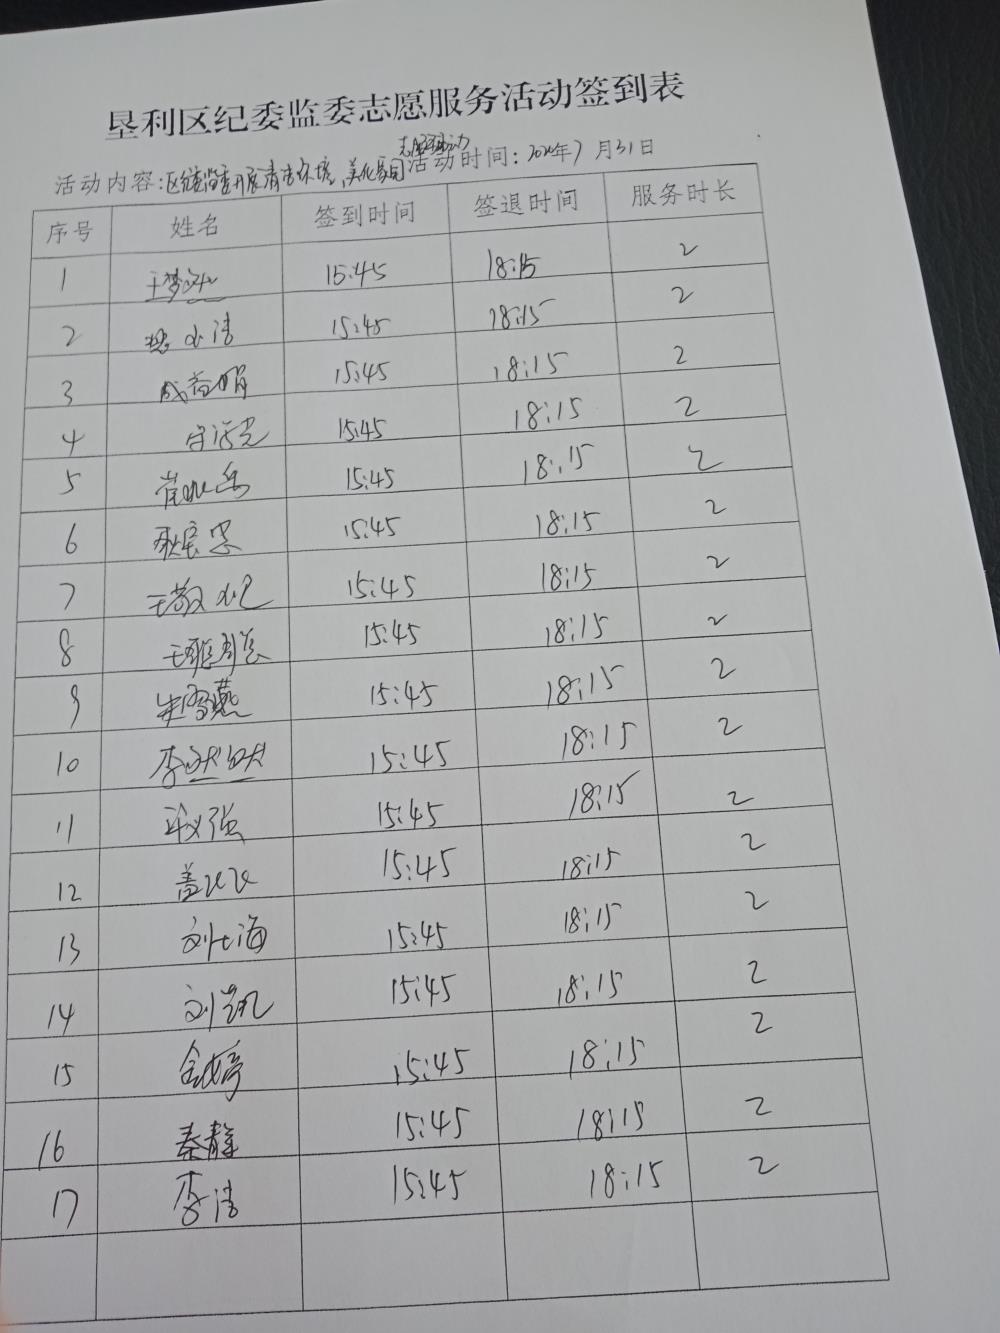 垦利区纪委监委志愿服务活动签到表
志愿活动
活动内容：区纪委监委开展清洁环境，美化家园 活动时间：年7月31日
序号 姓名 签到时间 签退时间 服务时长
1 王梦 15:45 18:15 2
2 小清 15:45 18:15 2
3 成益娟 15:45 18:15 2
4 15:45 18:15 2
5 崔 15:45 18:15 2
6 耿宝忠 15:45 18:15 2
7 王敬 15:45 18:15 2
8 王雅 15:45 18:15 2
9 朱雪燕 15:45 18:15 2
10 李 15:45 18:15 2
11 强 15:45 18:15 2
12 盖 15:45 18:15 2
13 刘七海 15:45 18:15 2
14 刘凯 15:45 18:15 2
15 金婷 15:45 18:15 2
16 秦静 15:45 18:15 2
17 李清 15:45 18:15 2